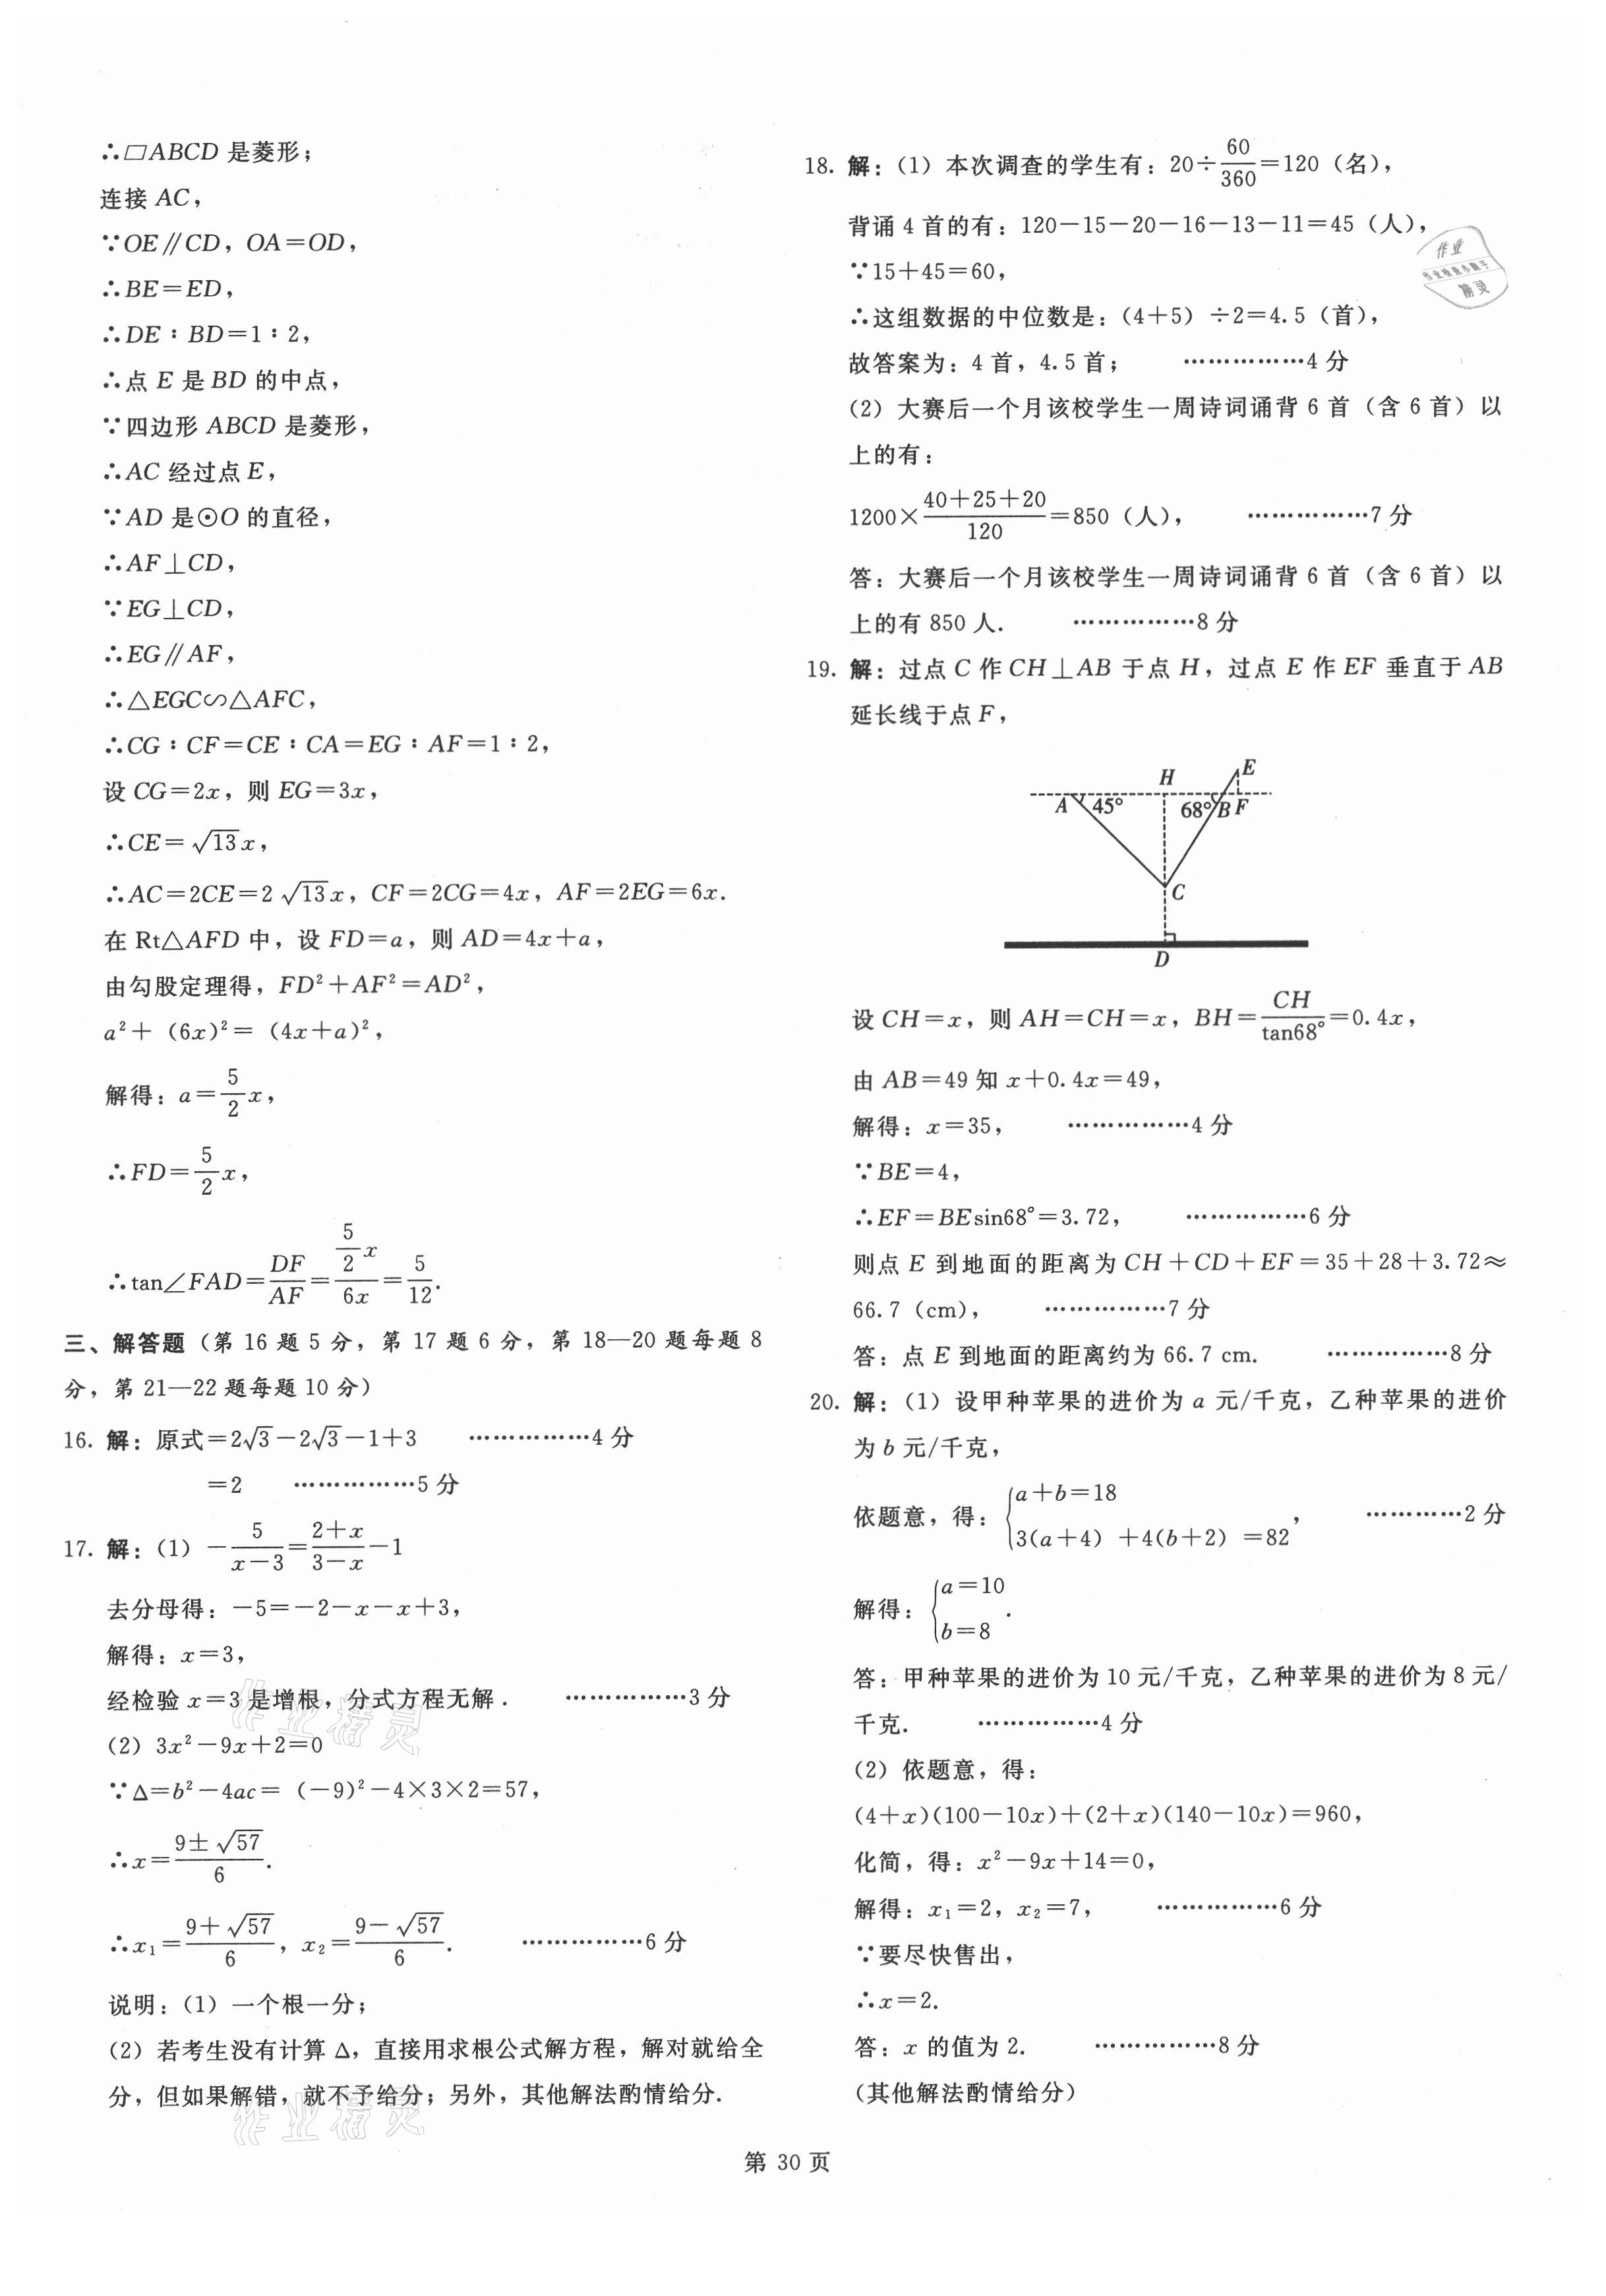 ∴▱ABCD 是菱形；
连接 AC，
∵OE∥CD，OA＝OD，
∴BE＝ED，
∴DE∶BD＝1∶2，
∴点 E 是 BD 的中点，
∵四边形 ABCD 是菱形，
∴AC 经过点 E，
∵AD 是⊙O 的直径，
∴AF⊥CD，
∵EG⊥CD，
∴EG∥AF，
∴△EGC∽△AFC，
∴CG∶CF＝CE∶CA＝EG∶AF＝1∶2，
设 CG＝2x，则 EG＝3x，
∴CE＝√13x，
∴AC＝2CE＝2√13x，CF＝2CG＝4x，AF＝2EG＝6x.
在 Rt△AFD 中，设 FD＝a，则 AD＝4x＋a，
由勾股定理得，FD²＋AF²＝AD²，
a²＋（6x）²＝（4x＋a）²，
解得：a＝5/2 x，
∴FD＝5/2 x，
∴tan∠FAD＝DF/AF＝(5/2 x)/(6x)＝5/12.
三、解答题（第 16 题 5 分，第 17 题 6 分，第 18—20 题每题 8
分，第 21—22 题每题 10 分）
16. 解：原式＝2√3－2√3－1＋3 ……………4 分
＝2 ……………5 分
17. 解：（1）－5/(x－3)＝(2＋x)/(3－x)－1
去分母得：－5＝－2－x－x＋3，
解得：x＝3，
经检验 x＝3 是增根，分式方程无解． ……………3 分
（2）3x²－9x＋2＝0
∵Δ＝b²－4ac＝（－9）²－4×3×2＝57，
∴x＝(9±√57)/6.
∴x₁＝(9＋√57)/6，x₂＝(9－√57)/6. ……………6 分
说明：（1）一个根一分；
（2）若考生没有计算 Δ，直接用求根公式解方程，解对就给全
分，但如果解错，就不予给分；另外，其他解法酌情给分.
作业精灵
作业精灵
18. 解：（1）本次调查的学生有：20÷60/360＝120（名），
背诵 4 首的有：120－15－20－16－13－11＝45（人），
∵15＋45＝60，
∴这组数据的中位数是：（4＋5）÷2＝4.5（首），
故答案为：4 首，4.5 首； ……………4 分
（2）大赛后一个月该校学生一周诗词诵背 6 首（含 6 首）以
上的有：
1200×(40＋25＋20)/120＝850（人）， ……………7 分
答：大赛后一个月该校学生一周诗词诵背 6 首（含 6 首）以
上的有 850 人. ……………8 分
作业
作业检查小助手
精灵
19. 解：过点 C 作 CH⊥AB 于点 H，过点 E 作 EF 垂直于 AB
延长线于点 F，
H E
A 45° 68° B F
C
D
设 CH＝x，则 AH＝CH＝x，BH＝CH/tan68°＝0.4x，
由 AB＝49 知 x＋0.4x＝49，
解得：x＝35， ……………4 分
∵BE＝4，
∴EF＝BEsin68°＝3.72， ……………6 分
则点 E 到地面的距离为 CH＋CD＋EF＝35＋28＋3.72≈
66.7（cm）， ……………7 分
答：点 E 到地面的距离约为 66.7 cm. ……………8 分
20. 解：（1）设甲种苹果的进价为 a 元/千克，乙种苹果的进价
为 b 元/千克，
依题意，得：{a＋b＝18
3(a＋4)＋4(b＋2)＝82， …………2 分
解得：{a＝10
b＝8.
答：甲种苹果的进价为 10 元/千克，乙种苹果的进价为 8 元/
千克. ……………4 分
（2）依题意，得：
(4＋x)(100－10x)＋(2＋x)(140－10x)＝960，
化简，得：x²－9x＋14＝0，
解得：x₁＝2，x₂＝7， ……………6 分
∵要尽快售出，
∴x＝2.
答：x 的值为 2. ……………8 分
（其他解法酌情给分）
第 30 页